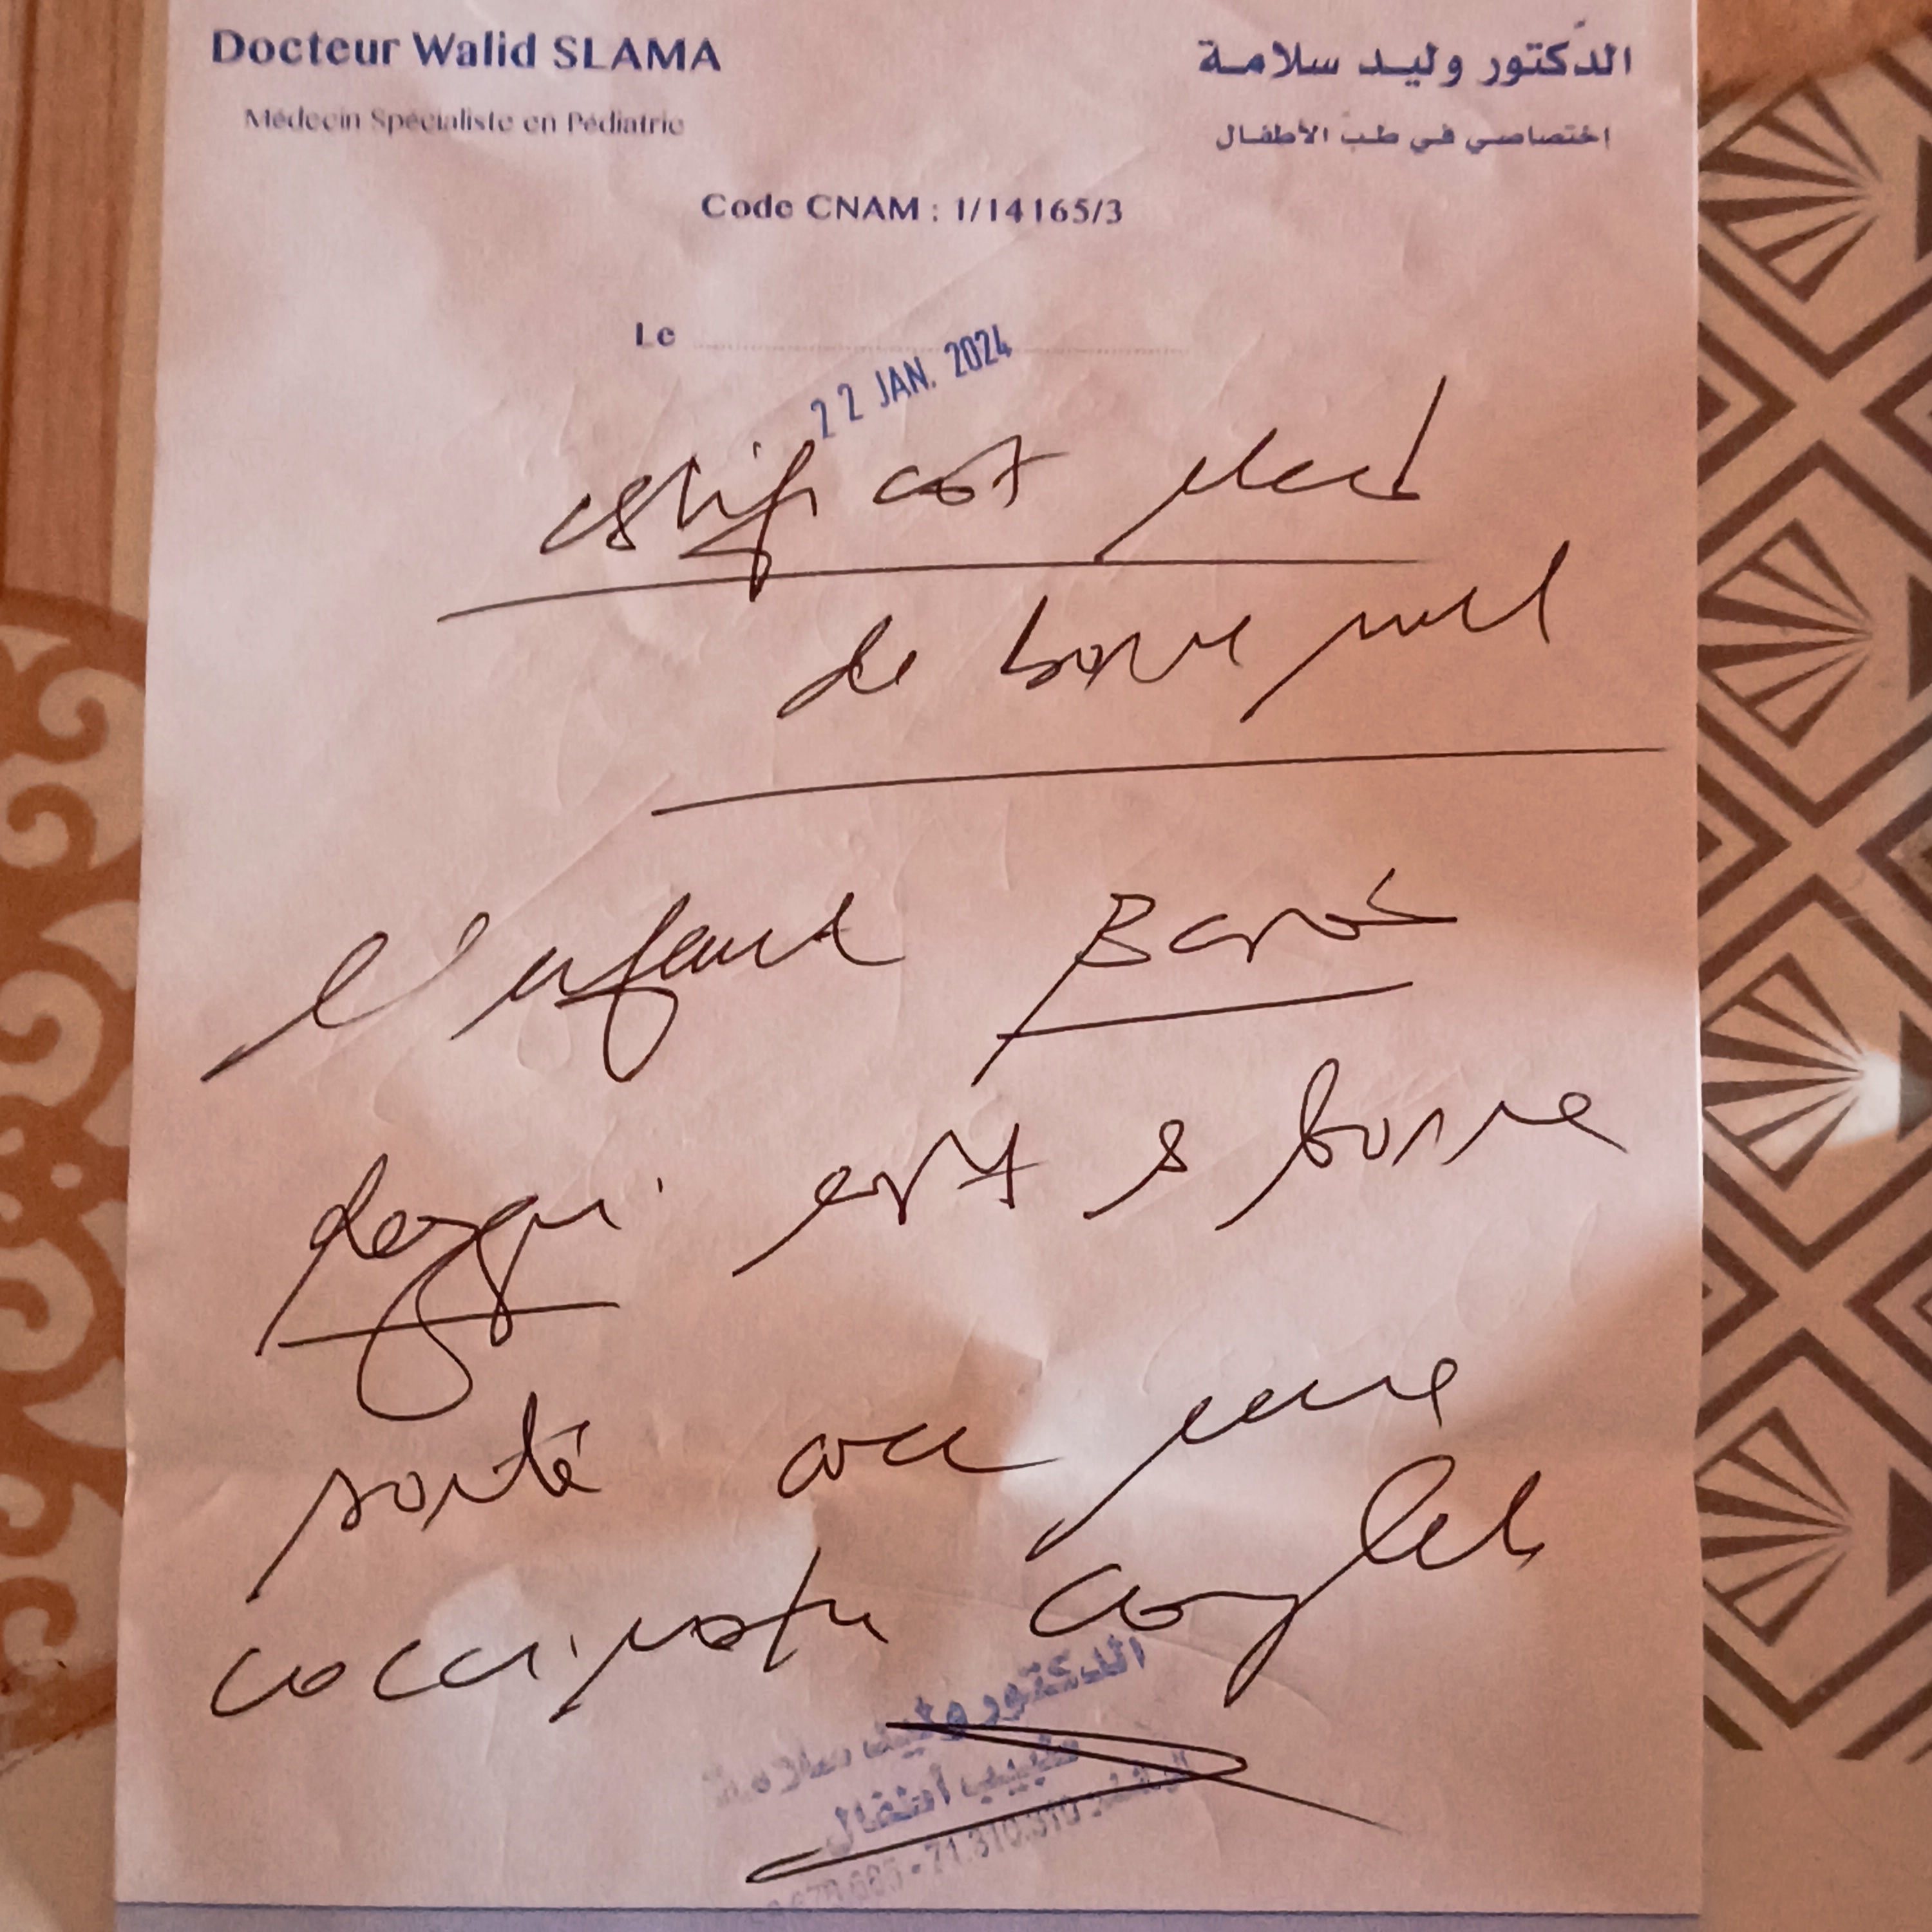 Docteur Walid SLAMA
الدكتور وليد سلامة
Médecin Spécialiste en Pédiatrie
اختصاصي في طب الأطفال
Code CNAM : 1/14165/3
Le
22 JAN. 2024
certificat
de bonne
l'enfant
est bonne
santé avec une
vaccination complet
الدكتور وليد سلامة
طبيب أطفال
71.310.310